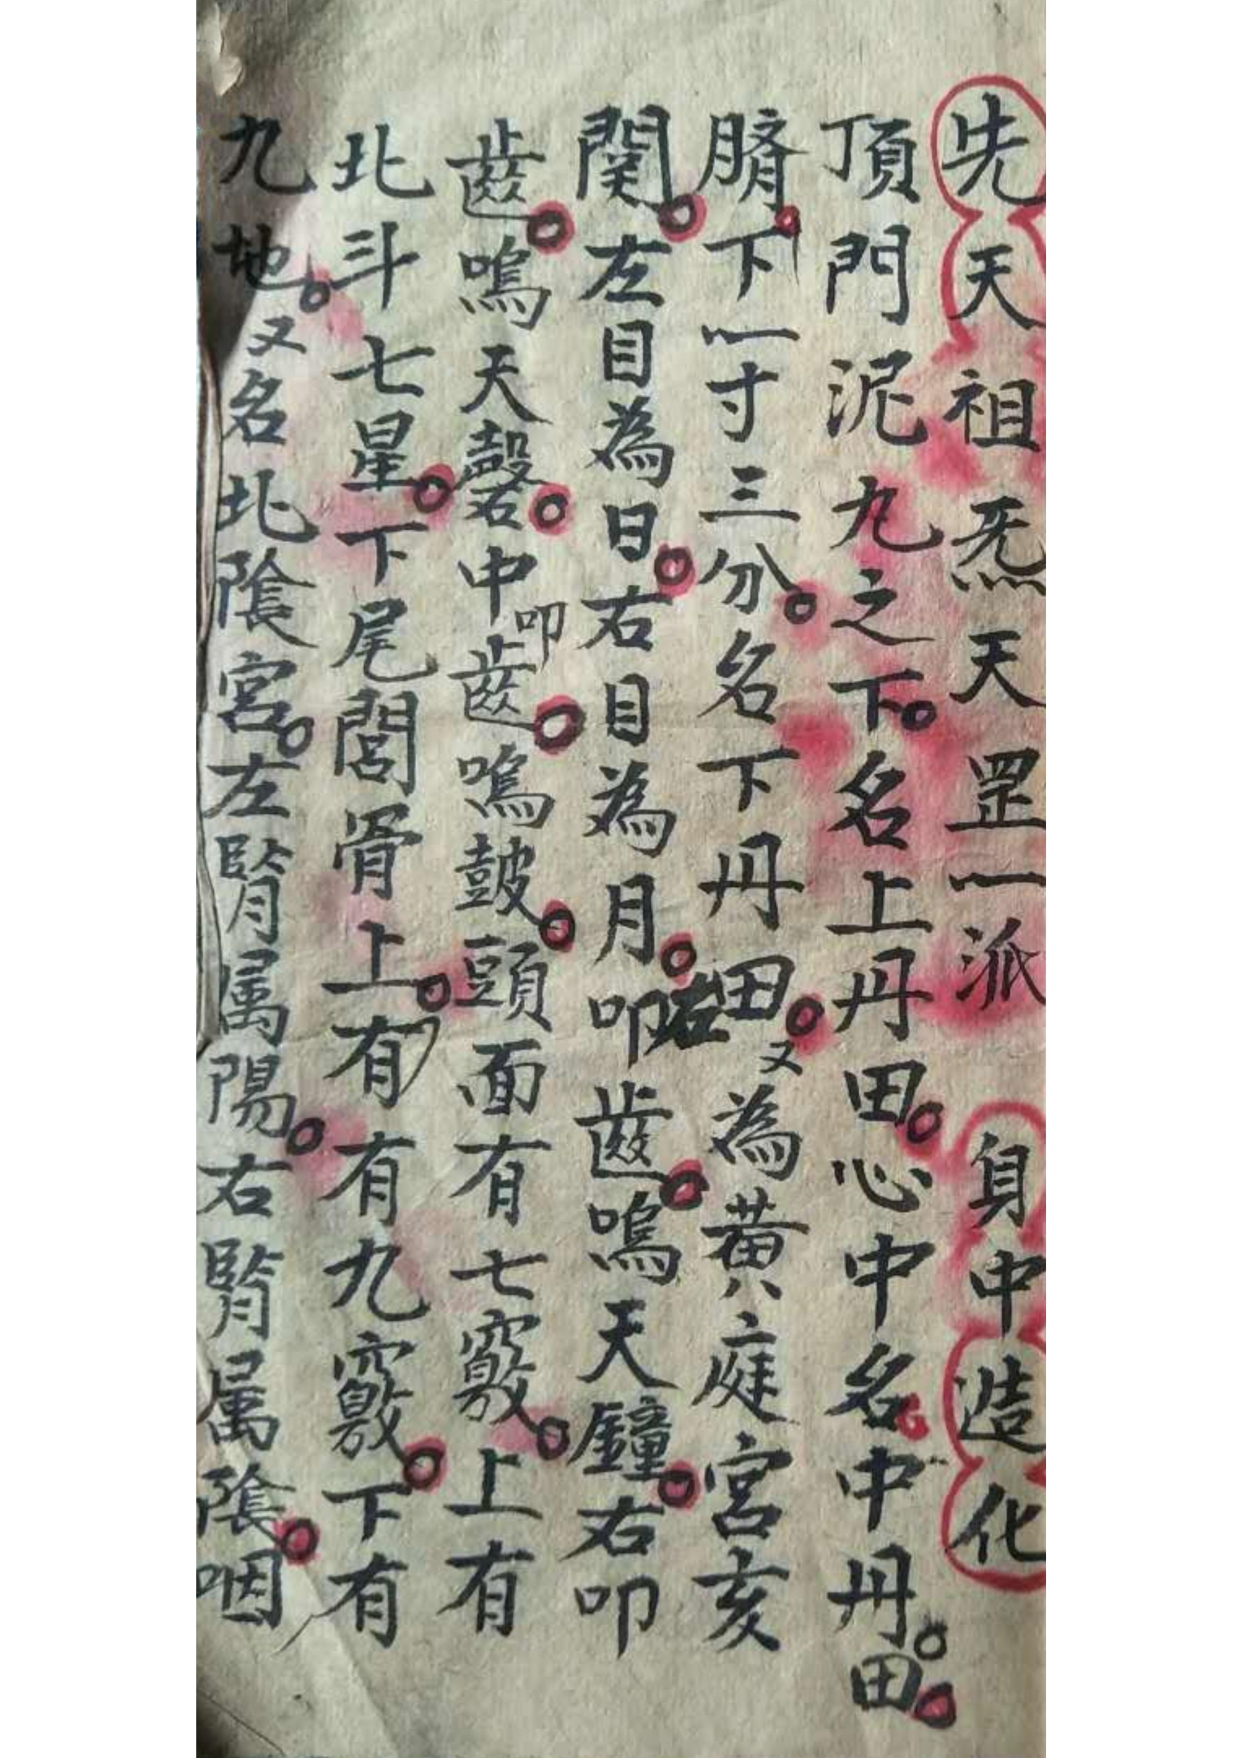 先天祖炁天罡一派 身中造化
頂門泥九之下名上丹田心中名中丹田
臍下一寸三分名下丹田又為黃庭宮亥
関左目為日右目為月叩左齒嗚天鐘右叩
齒嗚天磬中叩齒嗚鼓頭面有七竅上有
北斗七星下尾閭骨上有有九竅下有
九地又名北陰宮左腎属陽右腎属陰咽